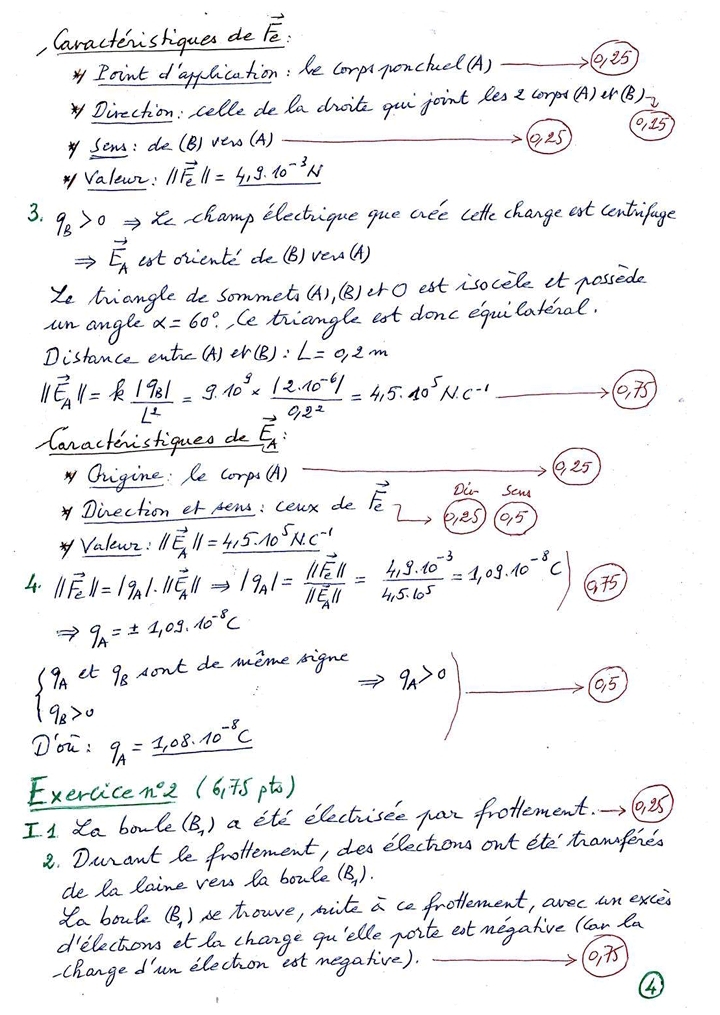 Caractéristiques de F⃗e :
* Point d'application : le corps ponctuel (A) → 0,25
* Direction : celle de la droite qui joint les 2 corps (A) et (B) → 0,25
* Sens : de (B) vers (A) → 0,25
* Valeur : ||F⃗e|| = 4,9.10⁻³ N
3. q_B > 0 ⇒ Le champ électrique que crée cette charge est centrifuge
⇒ E⃗_A est orienté de (B) vers (A)
Le triangle de sommets (A), (B) et O est isocèle et possède
un angle α = 60°. Ce triangle est donc équilatéral.
Distance entre (A) et (B) : L = 0,2 m
||E⃗_A|| = k |q_B| / L² = 9.10⁹ × |2.10⁻⁶| / 0,2² = 4,5.10⁵ N.C⁻¹ → 0,75
Caractéristiques de E⃗_A :
* Origine : le corps (A) → 0,25
Dir Sens
* Direction et sens : ceux de F⃗e → 0,25 0,5
* Valeur : ||E⃗_A|| = 4,5.10⁵ N.C⁻¹
4. ||F⃗e|| = |q_A|.||E⃗_A|| ⇒ |q_A| = ||F⃗e|| / ||E⃗_A|| = 4,9.10⁻³ / 4,5.10⁵ = 1,09.10⁻⁸ C ) 0,75
⇒ q_A = ± 1,09.10⁻⁸ C
{ q_A et q_B sont de même signe
⇒ q_A > 0 ) → 0,5
q_B > 0
D'où : q_A = 1,08.10⁻⁸ C
Exercice n°2 (6,75 pts)
I 1. La boule (B₁) a été électrisée par frottement. → 0,25
2. Durant le frottement, des électrons ont été transférés
de la laine vers la boule (B₁).
La boule (B₁) se trouve, suite à ce frottement, avec un excès
d'électrons et la charge qu'elle porte est négative (car la
charge d'un électron est negative). → 0,75
4